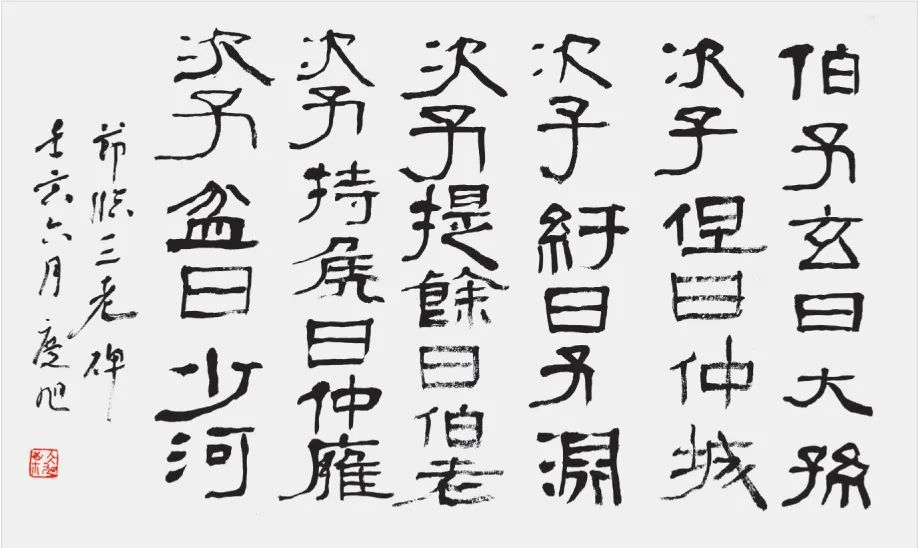 伯子玄曰大孫
次子但曰仲城
次子紆曰子淵
次子提餘曰伯老
次子持矦曰仲廱
次子盆曰少河
節臨三老碑
壬寅六月慶旭